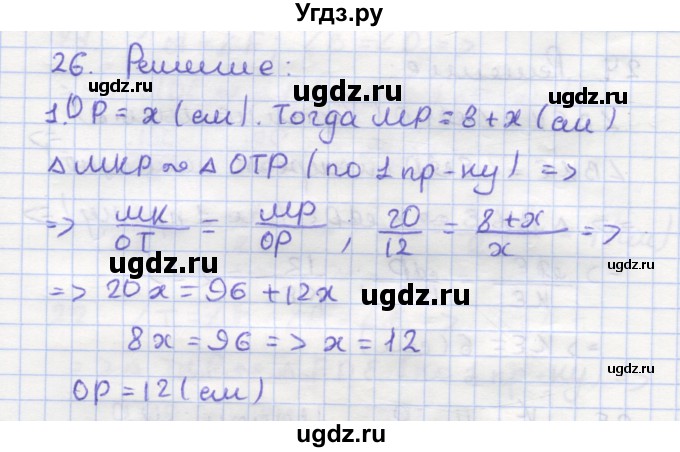 Угдз.ру
26. Решение:
ugdz.ru ugdz.ru
1. OP = x (см). Тогда MP = 8 + x (см)
△ MKP ∾ △ OTP (по 1 пр-ку) =>
=> MK/OT = MP/OP , 20/12 = 8+x/x =>
ugdz.ru
=> 20x = 96 + 12x
ugdz.ru
8x = 96 => x = 12
OP = 12 (см)
ugdz.ru ugdz.ru